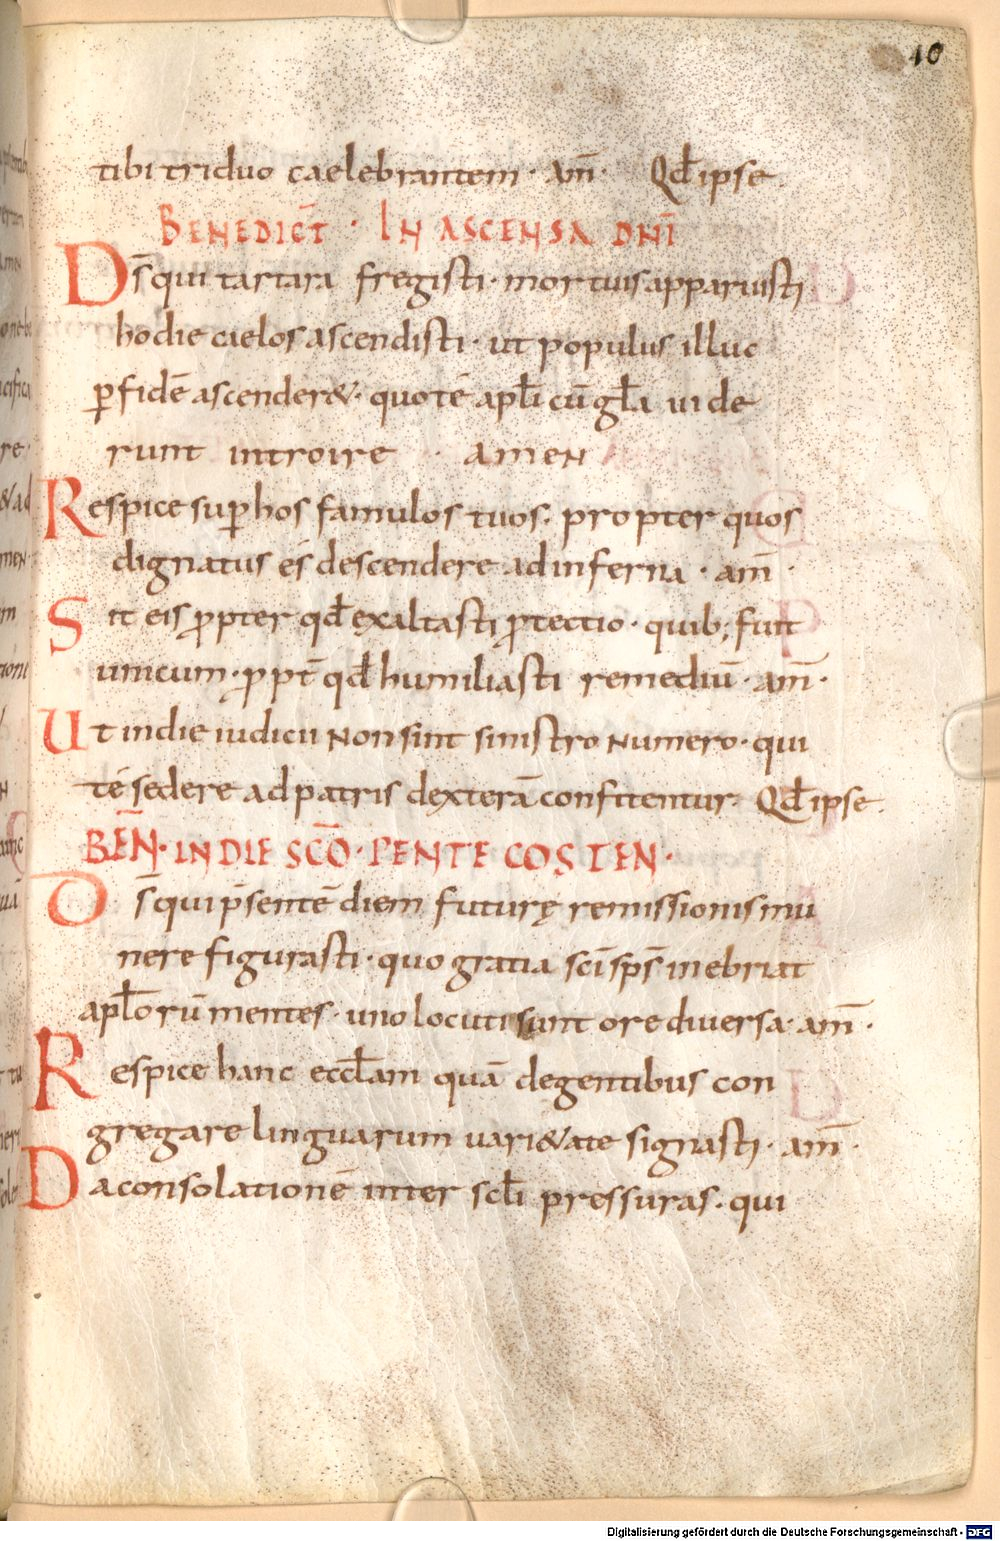 10
tibi triduo caelebrantem · am̄ · Qd̄ ipse
BENEDICT̄ · IN ASCENSA DNĪ
Ds̄ qui tartara fregisti · mortuis apparuisti
hodie cielos ascendisti · ut populus illuc
ꝑ fidē ascender& · quo té apłi cū gła uide
runt introire · AMEN
Respice suꝑ hos famulos tuos · propter quos
dignatus és descendere ad inferna · am̄ ·
Sit eis ꝓpter qd̄ exaltasti ꝓtectio · quib; fuit
unicum · ꝓpt̄ qd̄ humiliasti remediū · am̄ ·
Ut in die iudicii Non sint sinistro Numero · qui
té sedere ad patris dexterā confitentur · Qd̄ ipse ·
BEN̄ · IN DIE SCŌ · PENTECOSTEN ·
Ds̄ qui p̄sentē diem futurę remissionis mu
nere figurasti · quo gratia scī sps̄ inebriat
apłorū mentes · uno locuti sunt ore diuersa · am̄ ·
Respice hanc eccłam quā degentibus con
gregare linguarum uari&ate signasti · am̄ ·
Da consolationē inter scłi pressuras · qui
Digitalisierung gefördert durch die Deutsche Forschungsgemeinschaft - DFG